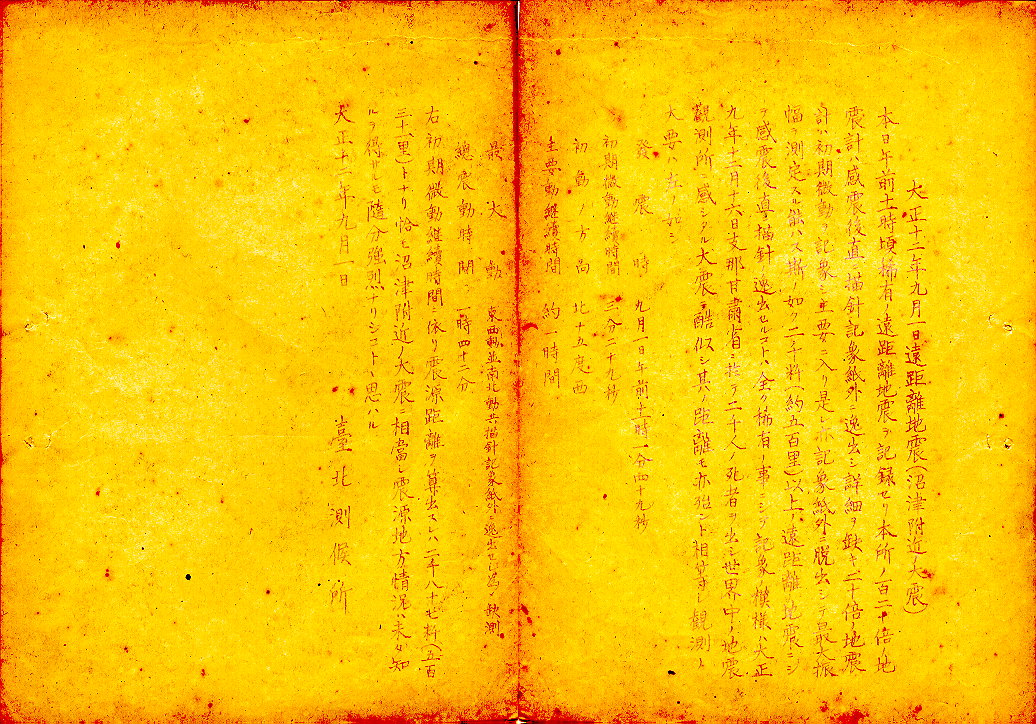 大正十二年九月一日遠距離地震(沼津附近ノ大震)
本日午前十一時頃稀有ノ遠距離地震ヲ記録セリ本所ノ一百二十倍ノ地
震計ハ感震後直ニ描針記象紙外ニ逸出シ詳細ヲ缺キ二十倍ノ地震
計ハ初期微動ヲ記象シ主要ニ入リ是レ亦記象紙外ニ脱出シテ最大振
幅ヲ測定スル能ハス斯ノ如ク二千粁(約五百里)以上ノ遠距離ノ地震ニシ
テ感震後直ニ描針ノ逸出セルコトハ全ク稀有ノ事ニシテ記象ノ模様ハ大正
九年十二月十六日支那甘肅省ニ於テ二十人ノ死者ヲ出シ世界中ノ地震
觀測所ニ感シタル大震ニ酷似シ其ノ距離モ亦殆ント相等シ觀測ノ
大要ハ左ノ如シ
發震時 九月一日午前十一時一分四十九秒
初期微動継續時間 三分二十九秒
初動ノ方向 北十五度西
主要動継續時間 約一時間
最大動 東西動並南北動共描針記象紙外ニ逸出セシ為メ缺測
總震動時間 一時四十二分
右初期微動継續時間ニ依リ震源距離ヲ算出スレハ二千八十七粁(五百
三十一里)トナリ恰モ沼津附近ノ大震ニ相當シ震源地方情況ハ未タ知
ルヲ得サレモ隨分強烈ナリシコトヽ思ハル
大正十二年九月一日
臺北測候所